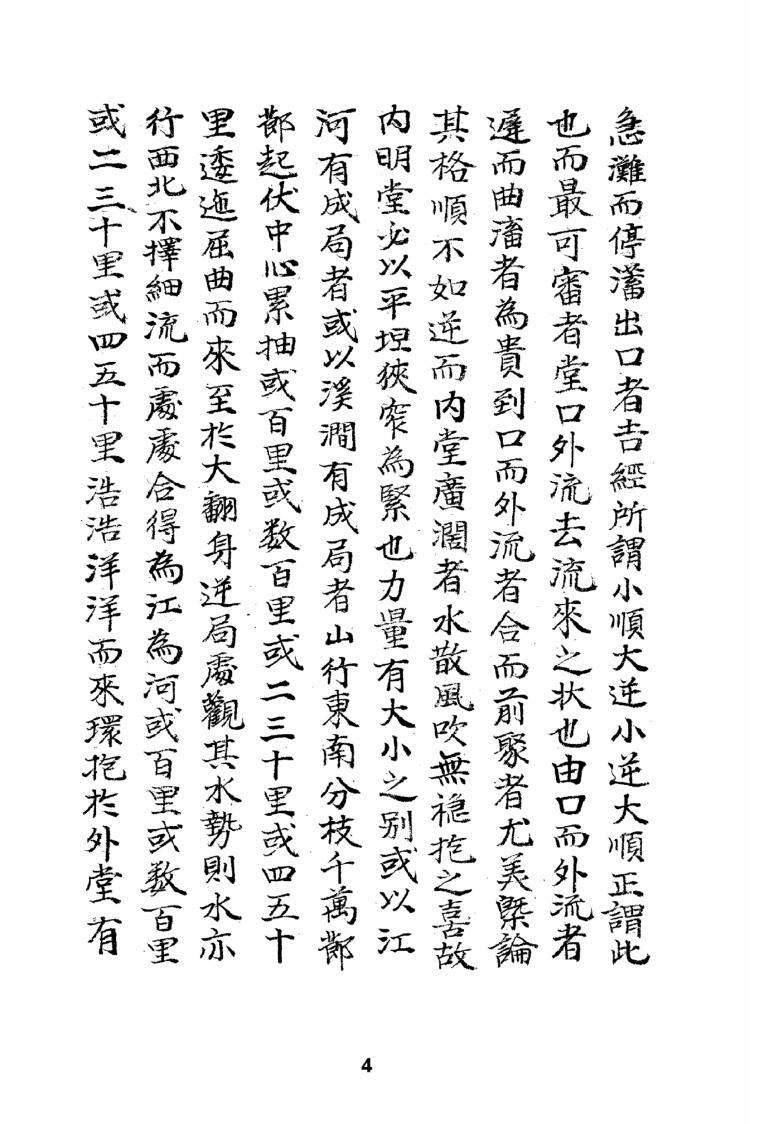 急灘而停瀋出口者吉經所謂小順大逆小逆大順正謂此
也而最可審者堂口外流去流來之状也由口而外流者
遲而曲瀋者為貴到口而外流者合而前聚者尤美槩論
其格順不如逆而内堂廣濶者水散風吹無穏抱之喜故
内明堂必以平坦狹窄為緊也力量有大小之別或以江
河有成局者或以溪澗有成局者山行東南分枝千萬鄼
鄼起伏中心累抽或百里或数百里或二三十里或四五十
里逶迤屈曲而來至扵大翻身逆局處觀其水勢則水亦
行西北不擇細流而處處合得為江為河或百里或数百里
或二三十里或四五十里浩浩洋洋而來環抱扵外堂有
4